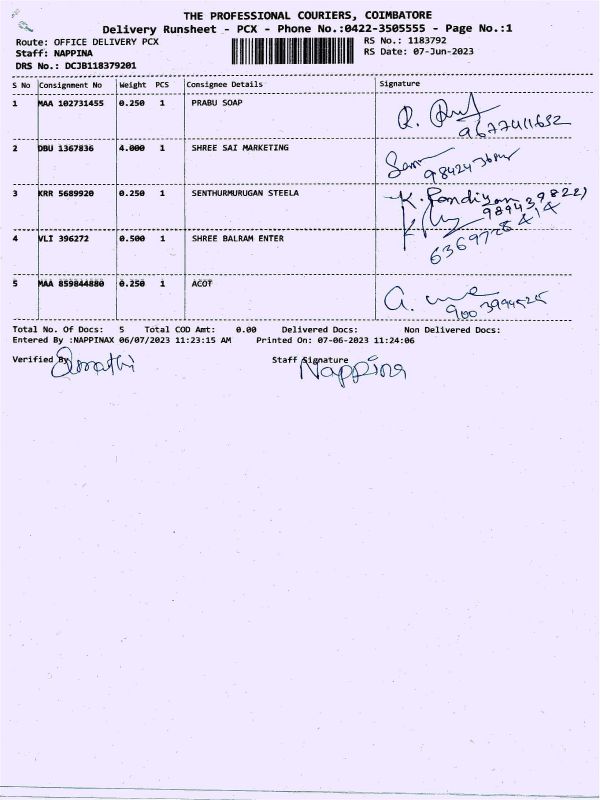 THE PROFESSIONAL COURIERS, COIMBATORE
Delivery Runsheet - PCX - Phone No.:0422-3505555 - Page No.:1
Route: OFFICE DELIVERY PCX RS No.: 1183792
Staff: NAPPINA RS Date: 07-Jun-2023
DRS No.: DCJB118379201
S No Consignment No Weight PCS Consignee Details Signature
1 MAA 102731455 0.250 1 PRABU SOAP
9677411652
2 DBU 1367836 4.000 1 SHREE SAI MARKETING
3 KRR 5689920 0.250 1 SENTHURMURUGAN STEELA K. Pandiyan
4 VLI 396272 0.500 1 SHREE BALRAM ENTER
6369728414
5 MAA 859844880 0.250 1 ACOT
Total No. Of Docs: 5 Total COD Amt: 0.00 Delivered Docs: Non Delivered Docs:
Entered By :NAPPINAX 06/07/2023 11:23:15 AM Printed On: 07-06-2023 11:24:06
Verified By Staff Signature
Nappina